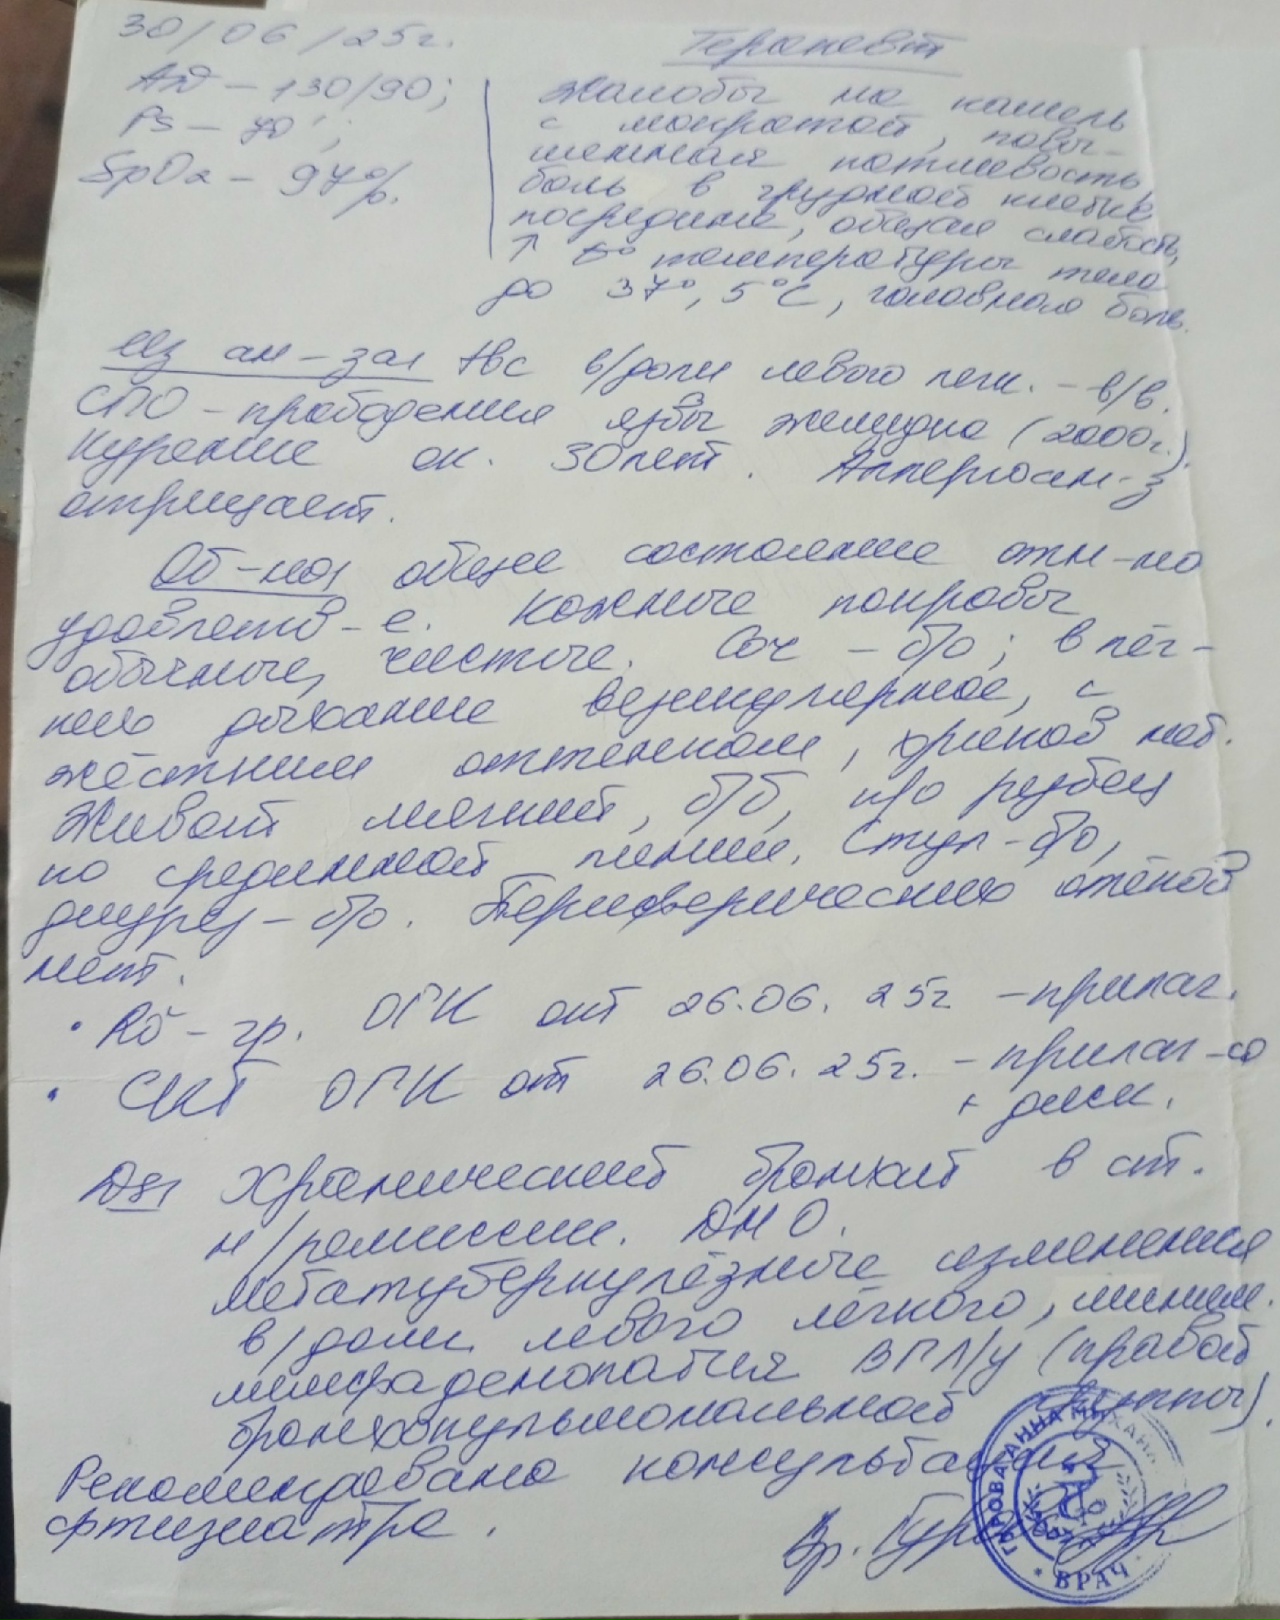 30/06/25г.
Терапевт
АД – 130/90;
Ps – 70';
SpO2 – 97%.
Жалобы на кашель
с мокротой, повы-
шенная потливость,
боль в грудной клетке
посредине, общая слабость,
↑ t° температуры тела
до 37°,5°С, головная боль.
Из ан-за: Tbc в/доли левого легк. – в/в.
СПО – прободения язвы желудка (2000г.)
Курение ок. 30лет. Аллергоан-з
отрицает.
Об-но: общее состояние отн-но
удовлетв-е. Кожные покровы
обычные, чистые. Соч – б/о; в лёг-
ких дыхание везикулярное, с
жёстким оттенком, хрипов нет.
Живот мягкий, б/б, п/о рубец
по срединной линии. Стул – б/о,
диурез – б/о. Периферических отёков
нет.
• Rö – гр. ОГК от 26.06.25г – прилаг.
• СКТ ОГК от 26.06.25г. – прилаг-ся
+ диск.
Ds: Хронический бронхит в ст.
н/ремиссии. ДН 0.
Метатуберкулёзные изменения
в/доли левого лёгкого, миним.
лимфаденопатия ВГЛ/у (правой
бронхопульмональной группы).
Рекомендована консультация
фтизиатра.
Вр.
АННА МИХАЙ
ВРАЧ